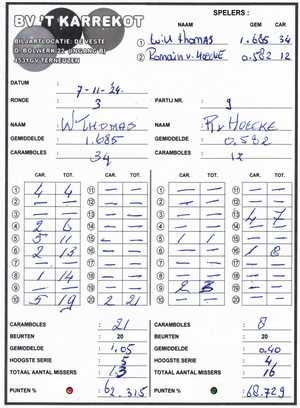 SPELERS :
BV.'T KARREKOT
NAAM GEM CAR
BILJARTLOCATIE: DEVESTE
D. BOLWERK 22 (INGANG B)
4531GV TERNEUZEN
1 Will Thomas 1.685 34
2 Romain v. Hoecke 0.582 12
DATUM : 7-11-24.
RONDE 3 PARTIJ NR. : 9
NAAM W Thomas NAAM R. v Hoecke
GEMIDDELDE 1.685 GEMIDDELDE 0.582
CARAMBOLES 34 CARAMBOLES 12
CAR. TOT. CAR. TOT. CAR. TOT. CAR. TOT.
1 4 4 11 — — 1 — — 11 — —
2 — — 12 — — 2 — — 12 — —
3 — — 13 — — 3 — — 13 4 7
4 2 6 14 — — 4 — — 14 — —
5 5 11 15 — — 5 1 1 15 — —
6 2 13 16 — — 6 — — 16 1 8
7 — — 17 — — 7 — — 17 — —
8 1 14 18 — — 8 — — 18 — —
9 — — 19 — — 9 2 3 19 — —
10 5 19 20 2 21 10 — — 20 — —
CARAMBOLES : 21 CARAMBOLES : 8
BEURTEN : 20 BEURTEN : 20
GEMIDDELDE : 1.05 GEMIDDELDE : 0.40
HOOGSTE SERIE : 5 HOOGSTE SERIE : 4
TOTAAL AANTAL MISSERS : 13 TOTAAL AANTAL MISSERS : 16
PUNTEN % : 62.315 PUNTEN % : 68.729